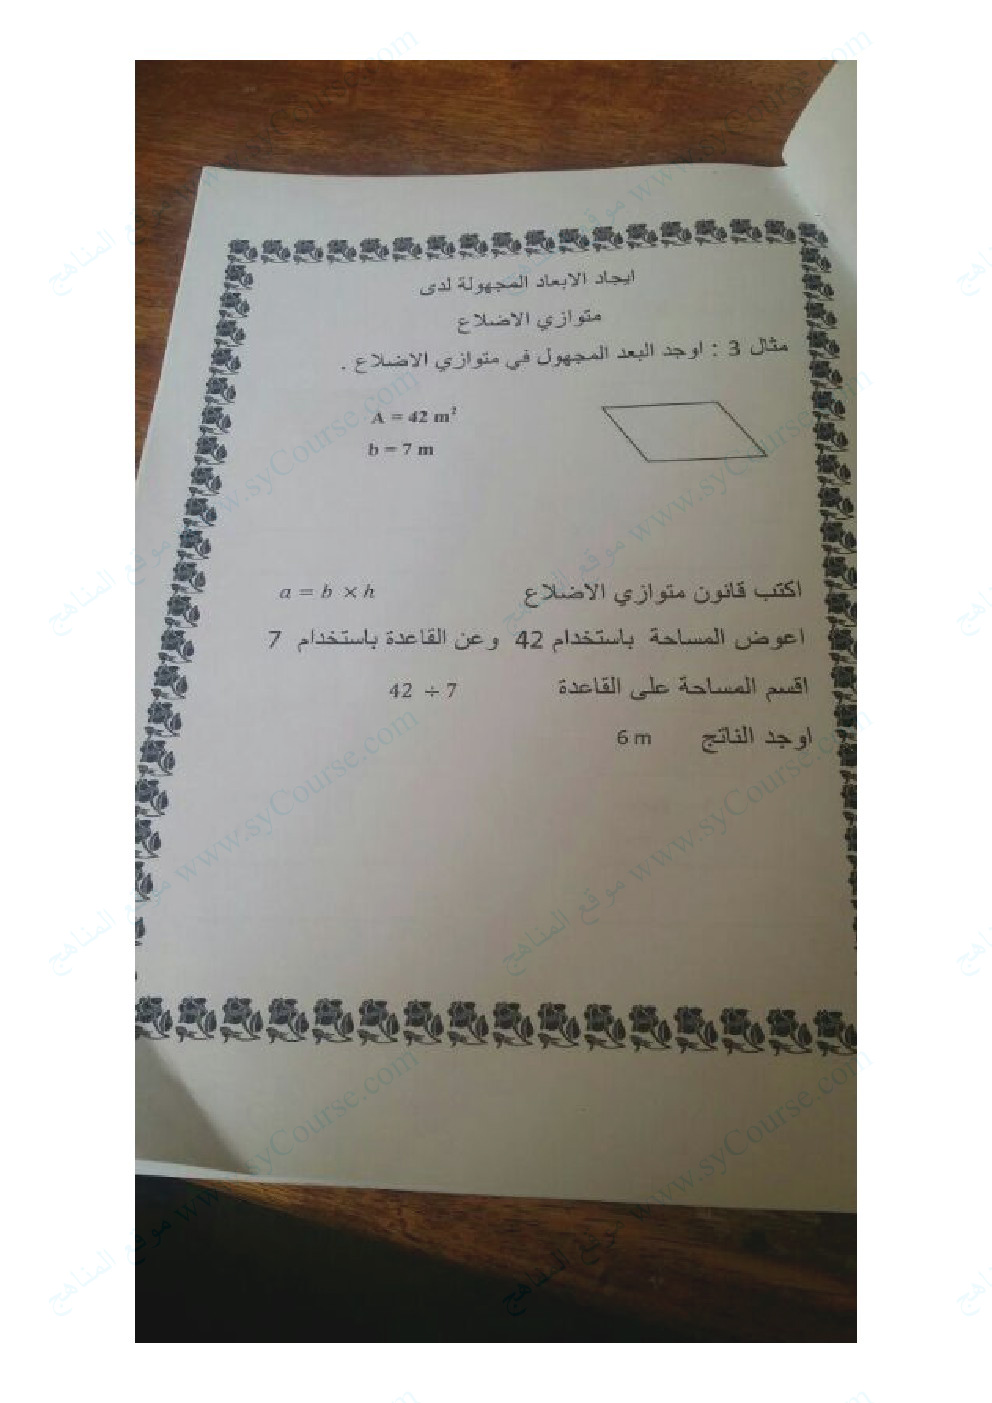 ايجاد الابعاد المجهولة لدى
متوازي الاضلاع
مثال 3 : اوجد البعد المجهول في متوازي الاضلاع .
A = 42 m²
b = 7 m
اكتب قانون متوازي الاضلاع a = b × h
اعوض المساحة باستخدام 42 وعن القاعدة باستخدام 7
اقسم المساحة على القاعدة 42 ÷ 7
اوجد الناتج 6 m
موقع المناهج www.syCourse.com